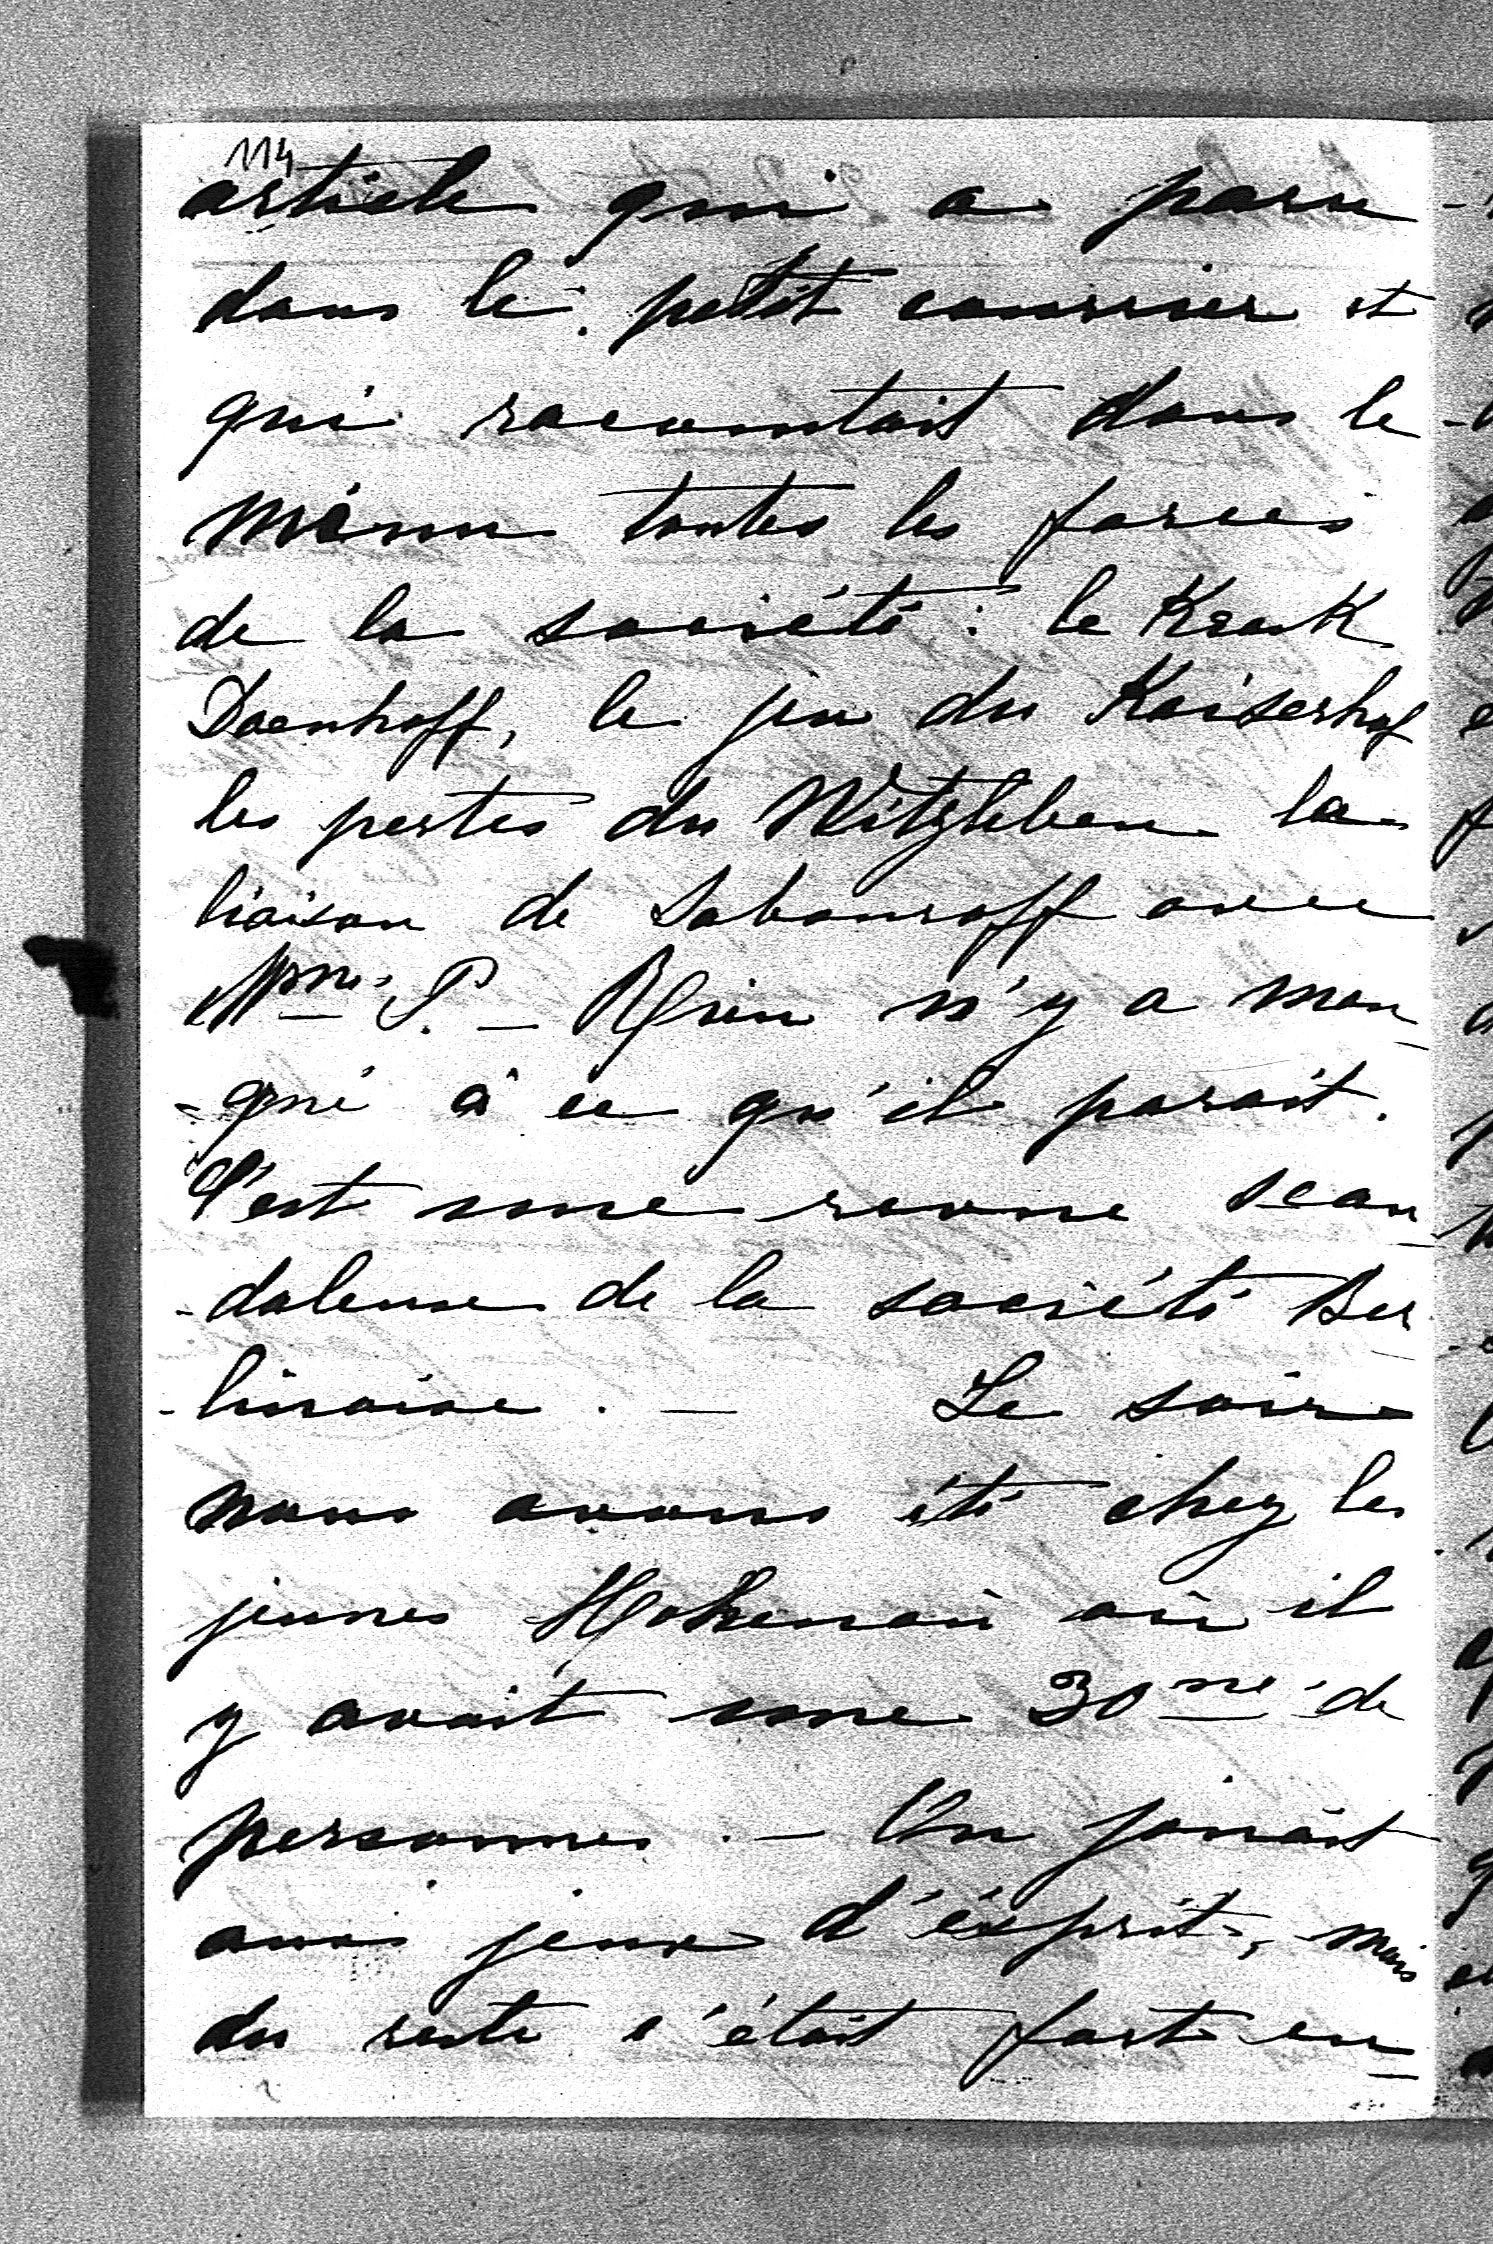 114
article qui a paru
dans le petit courrier et
qui racontait dans le
ménu toutes les farces
de la société : le Krack
Doenhoff, le jeu du Kaiserhof
les pertes du Witzleben la
liaison de Sabouroff avec
Mme P. – Rien n'y a man
-qué à ce qu'il parait.
C'est une revue scan
-daleuse de la société Ber
-linoise . – Le soir
nous avons été chez les
jeunes Hohenau où il
y avait une 30ne de
personnes . – On jouait
aux jeux d'ésprit, mais
du reste c'était fort en